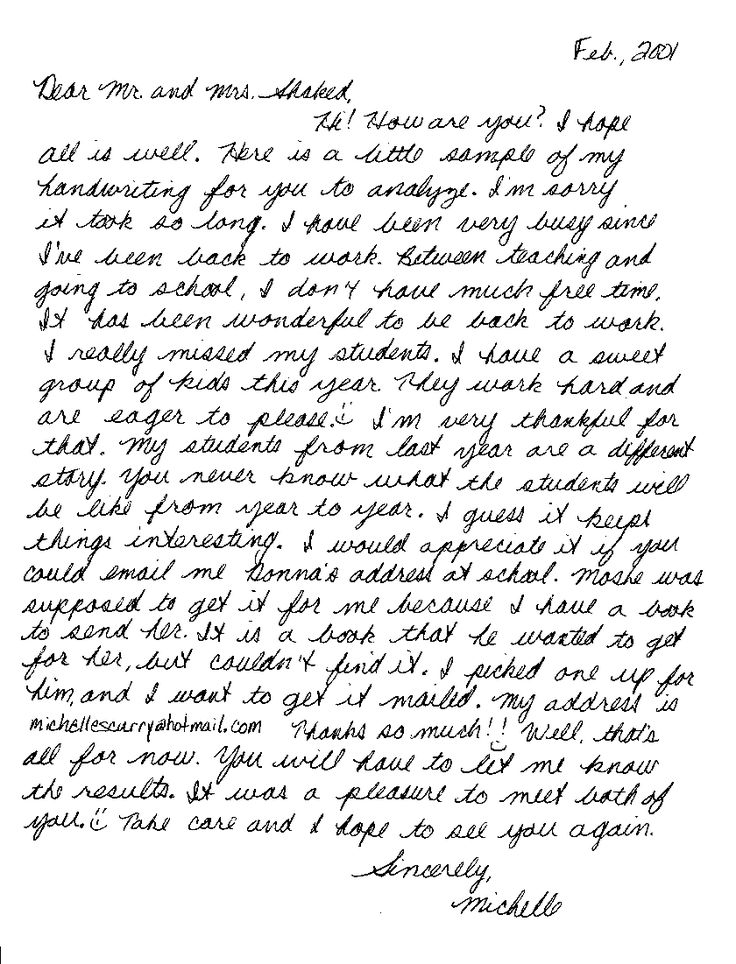 Feb., 2001
Dear Mr. and Mrs. Shaked,
Hi! How are you? I hope
all is well. Here is a little sample of my
handwriting for you to analyze. I'm sorry
it took so long. I have been very busy since
I've been back to work. Between teaching and
going to school, I don't have much free time.
It has been wonderful to be back to work.
I really missed my students. I have a sweet
group of kids this year. They work hard and
are eager to please. I'm very thankful for
that. My students from last year are a different
story. You never know what the students will
be like from year to year. I guess it keeps
things interesting. I would appreciate it if you
could email me Donna's address at school. Moshe was
supposed to get it for me because I have a book
to send her. It is a book that he wanted to get
for her, but couldn't find it. I picked one up for
him, and I want to get it mailed. My address is
michellescurry@hotmail.com Thanks so much!! Well, that's
all for now. You will have to let me know
the results. It was a pleasure to meet both of
you. Take care and I hope to see you again.
Sincerely,
Michelle